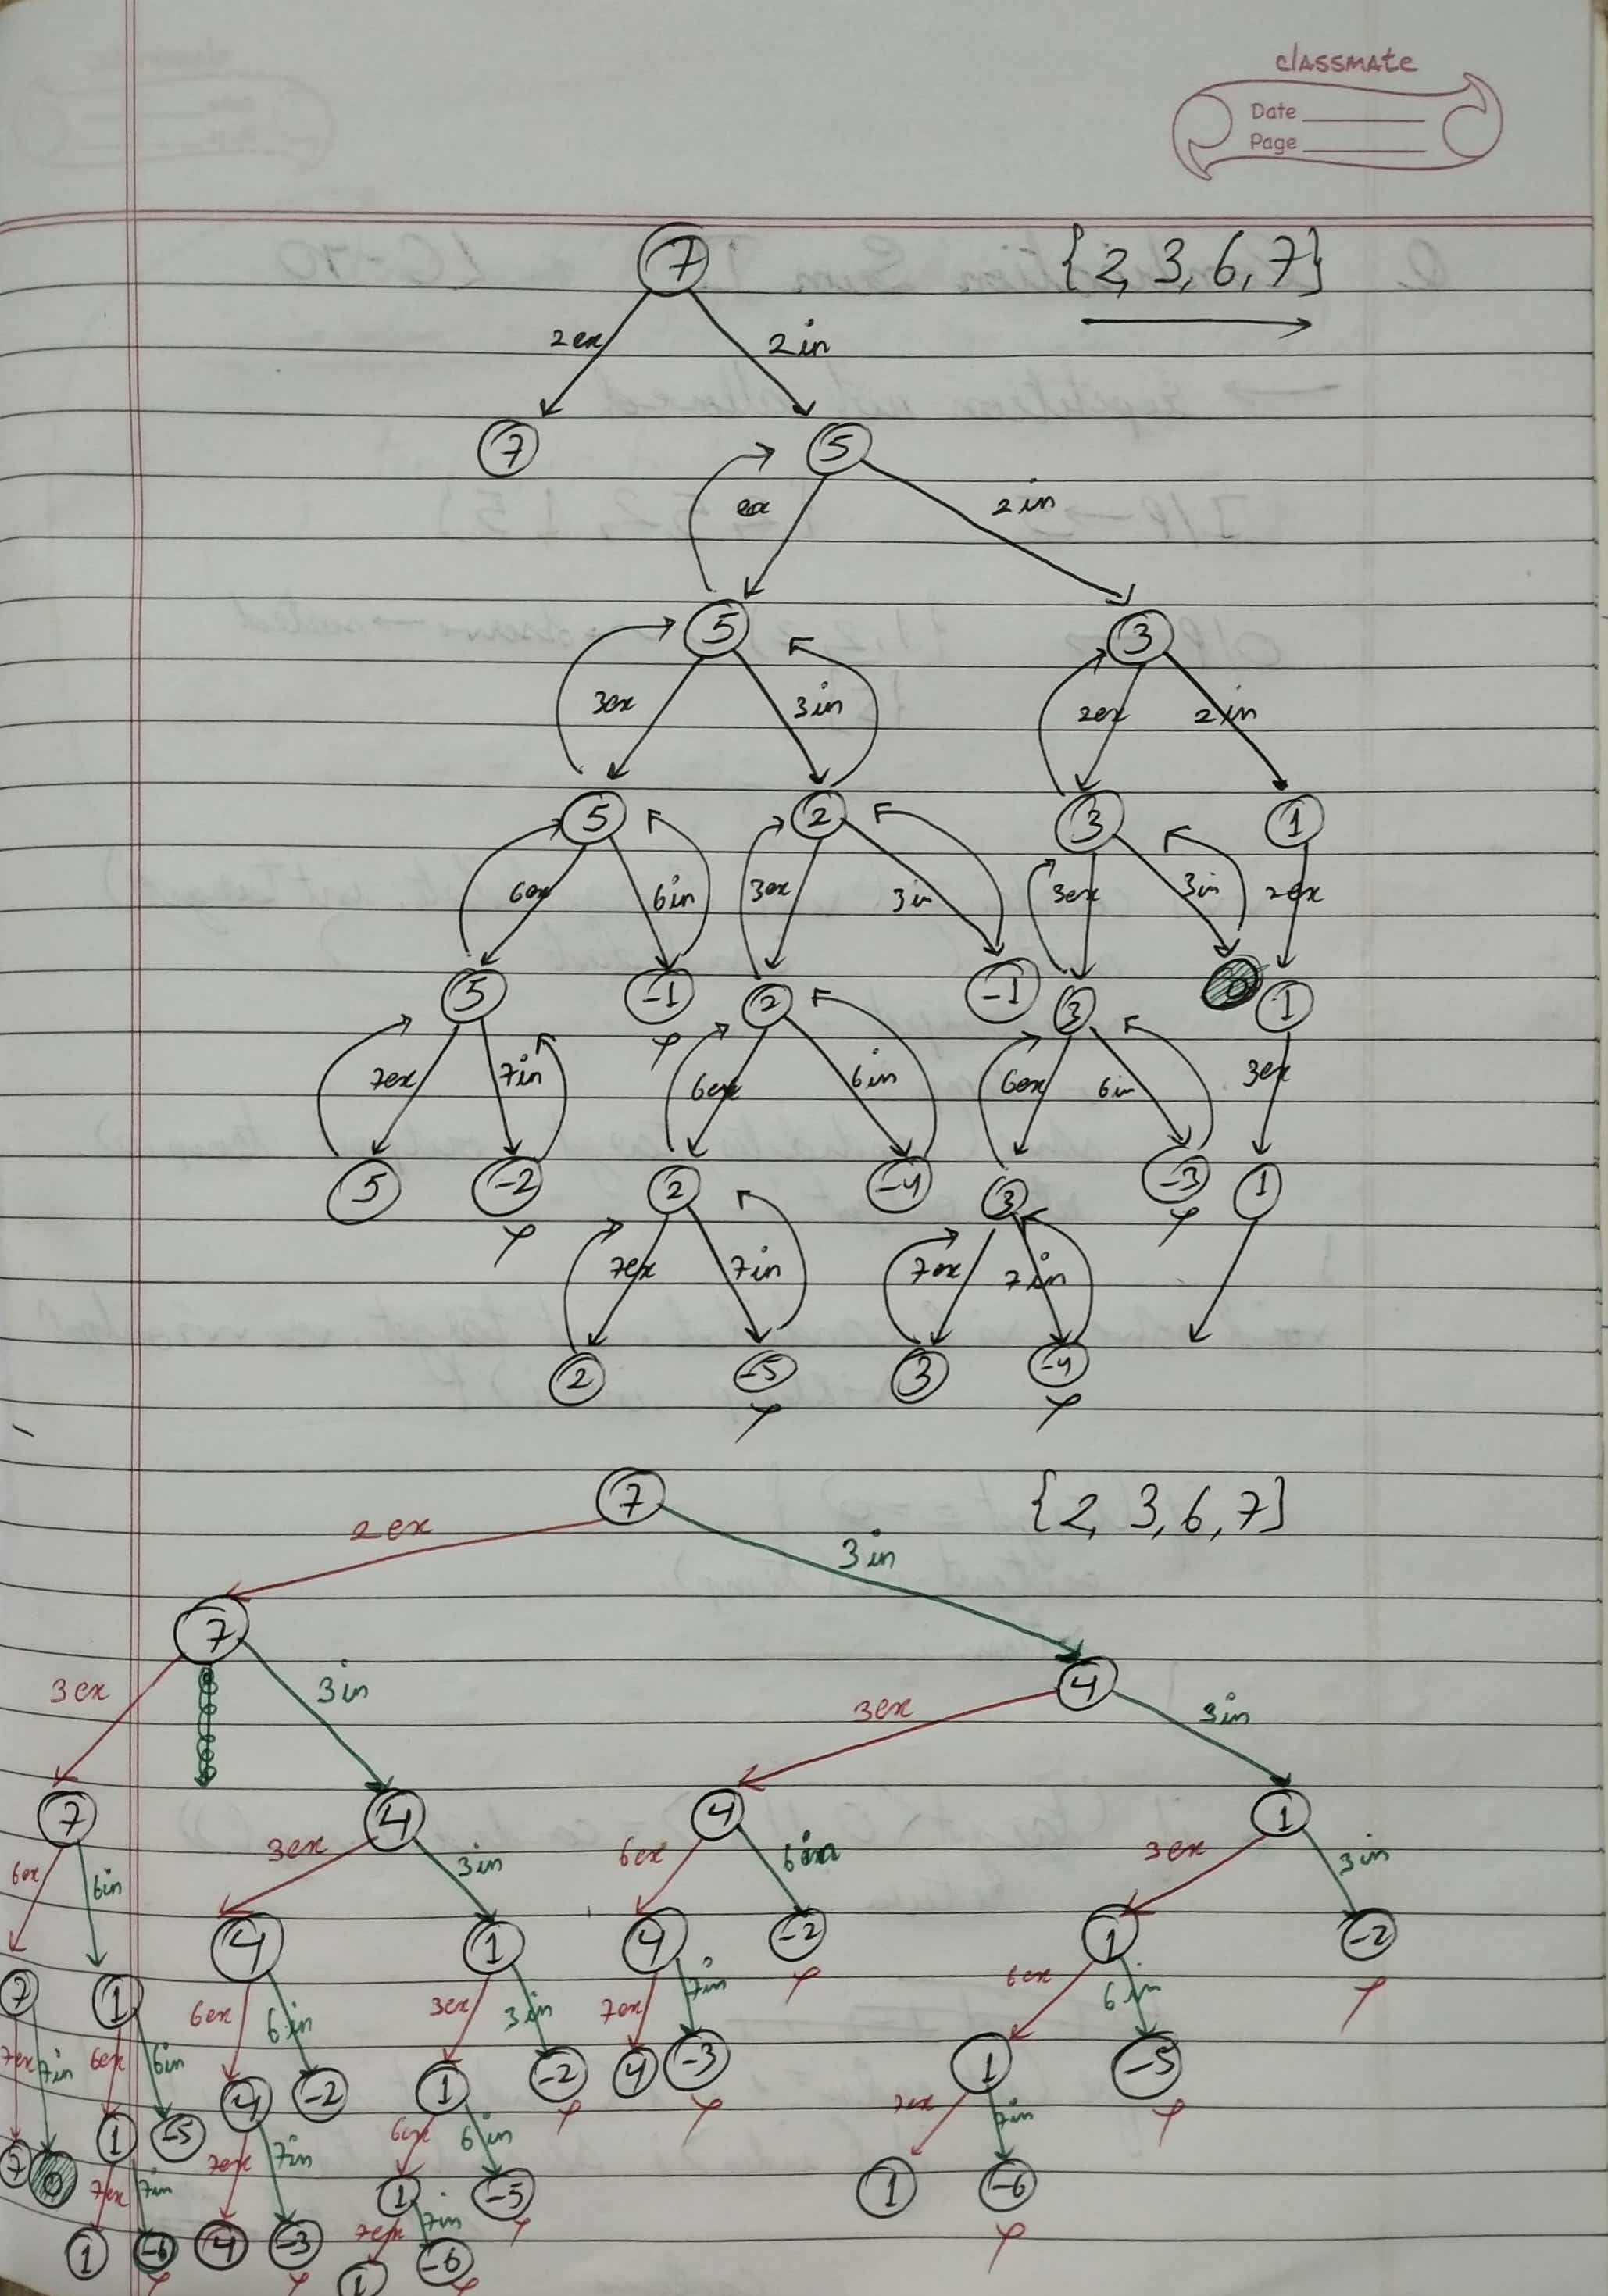 classmate
Date
Page
7 {2, 3, 6, 7}
2ex 2in
7 5
ex 2in
5 3
3ex 3in 2ex 2in
5 2 3 1
6ex 6in 3ex 3in 3ex 3in 2ex
5 -1 2 -1 3 0 1
7ex 7in 6ex 6in 6ex 6in 3ex
5 -2 2 -4 3 -3 1
7ex 7in 7ex 7in
2 -5 3 -4
7 {2, 3, 6, 7}
2ex 3in
7 4
3ex 3in 3ex 3in
7 4 4 1
6ex 6in 3ex 3in 6ex 6in 3ex 3in
7 1 4 1 4 -2 1 -2
7ex 7in 6ex 6in 6ex 6in 3ex 3in 7ex 7in 6ex 6in
7 0 1 -5 4 -2 1 -2 4 -3 1 -5
7ex 7in 7ex 7in 6ex 6in 7ex 7in
1 -6 4 -3 1 -5 1 -6
7ex 7in
1 -6